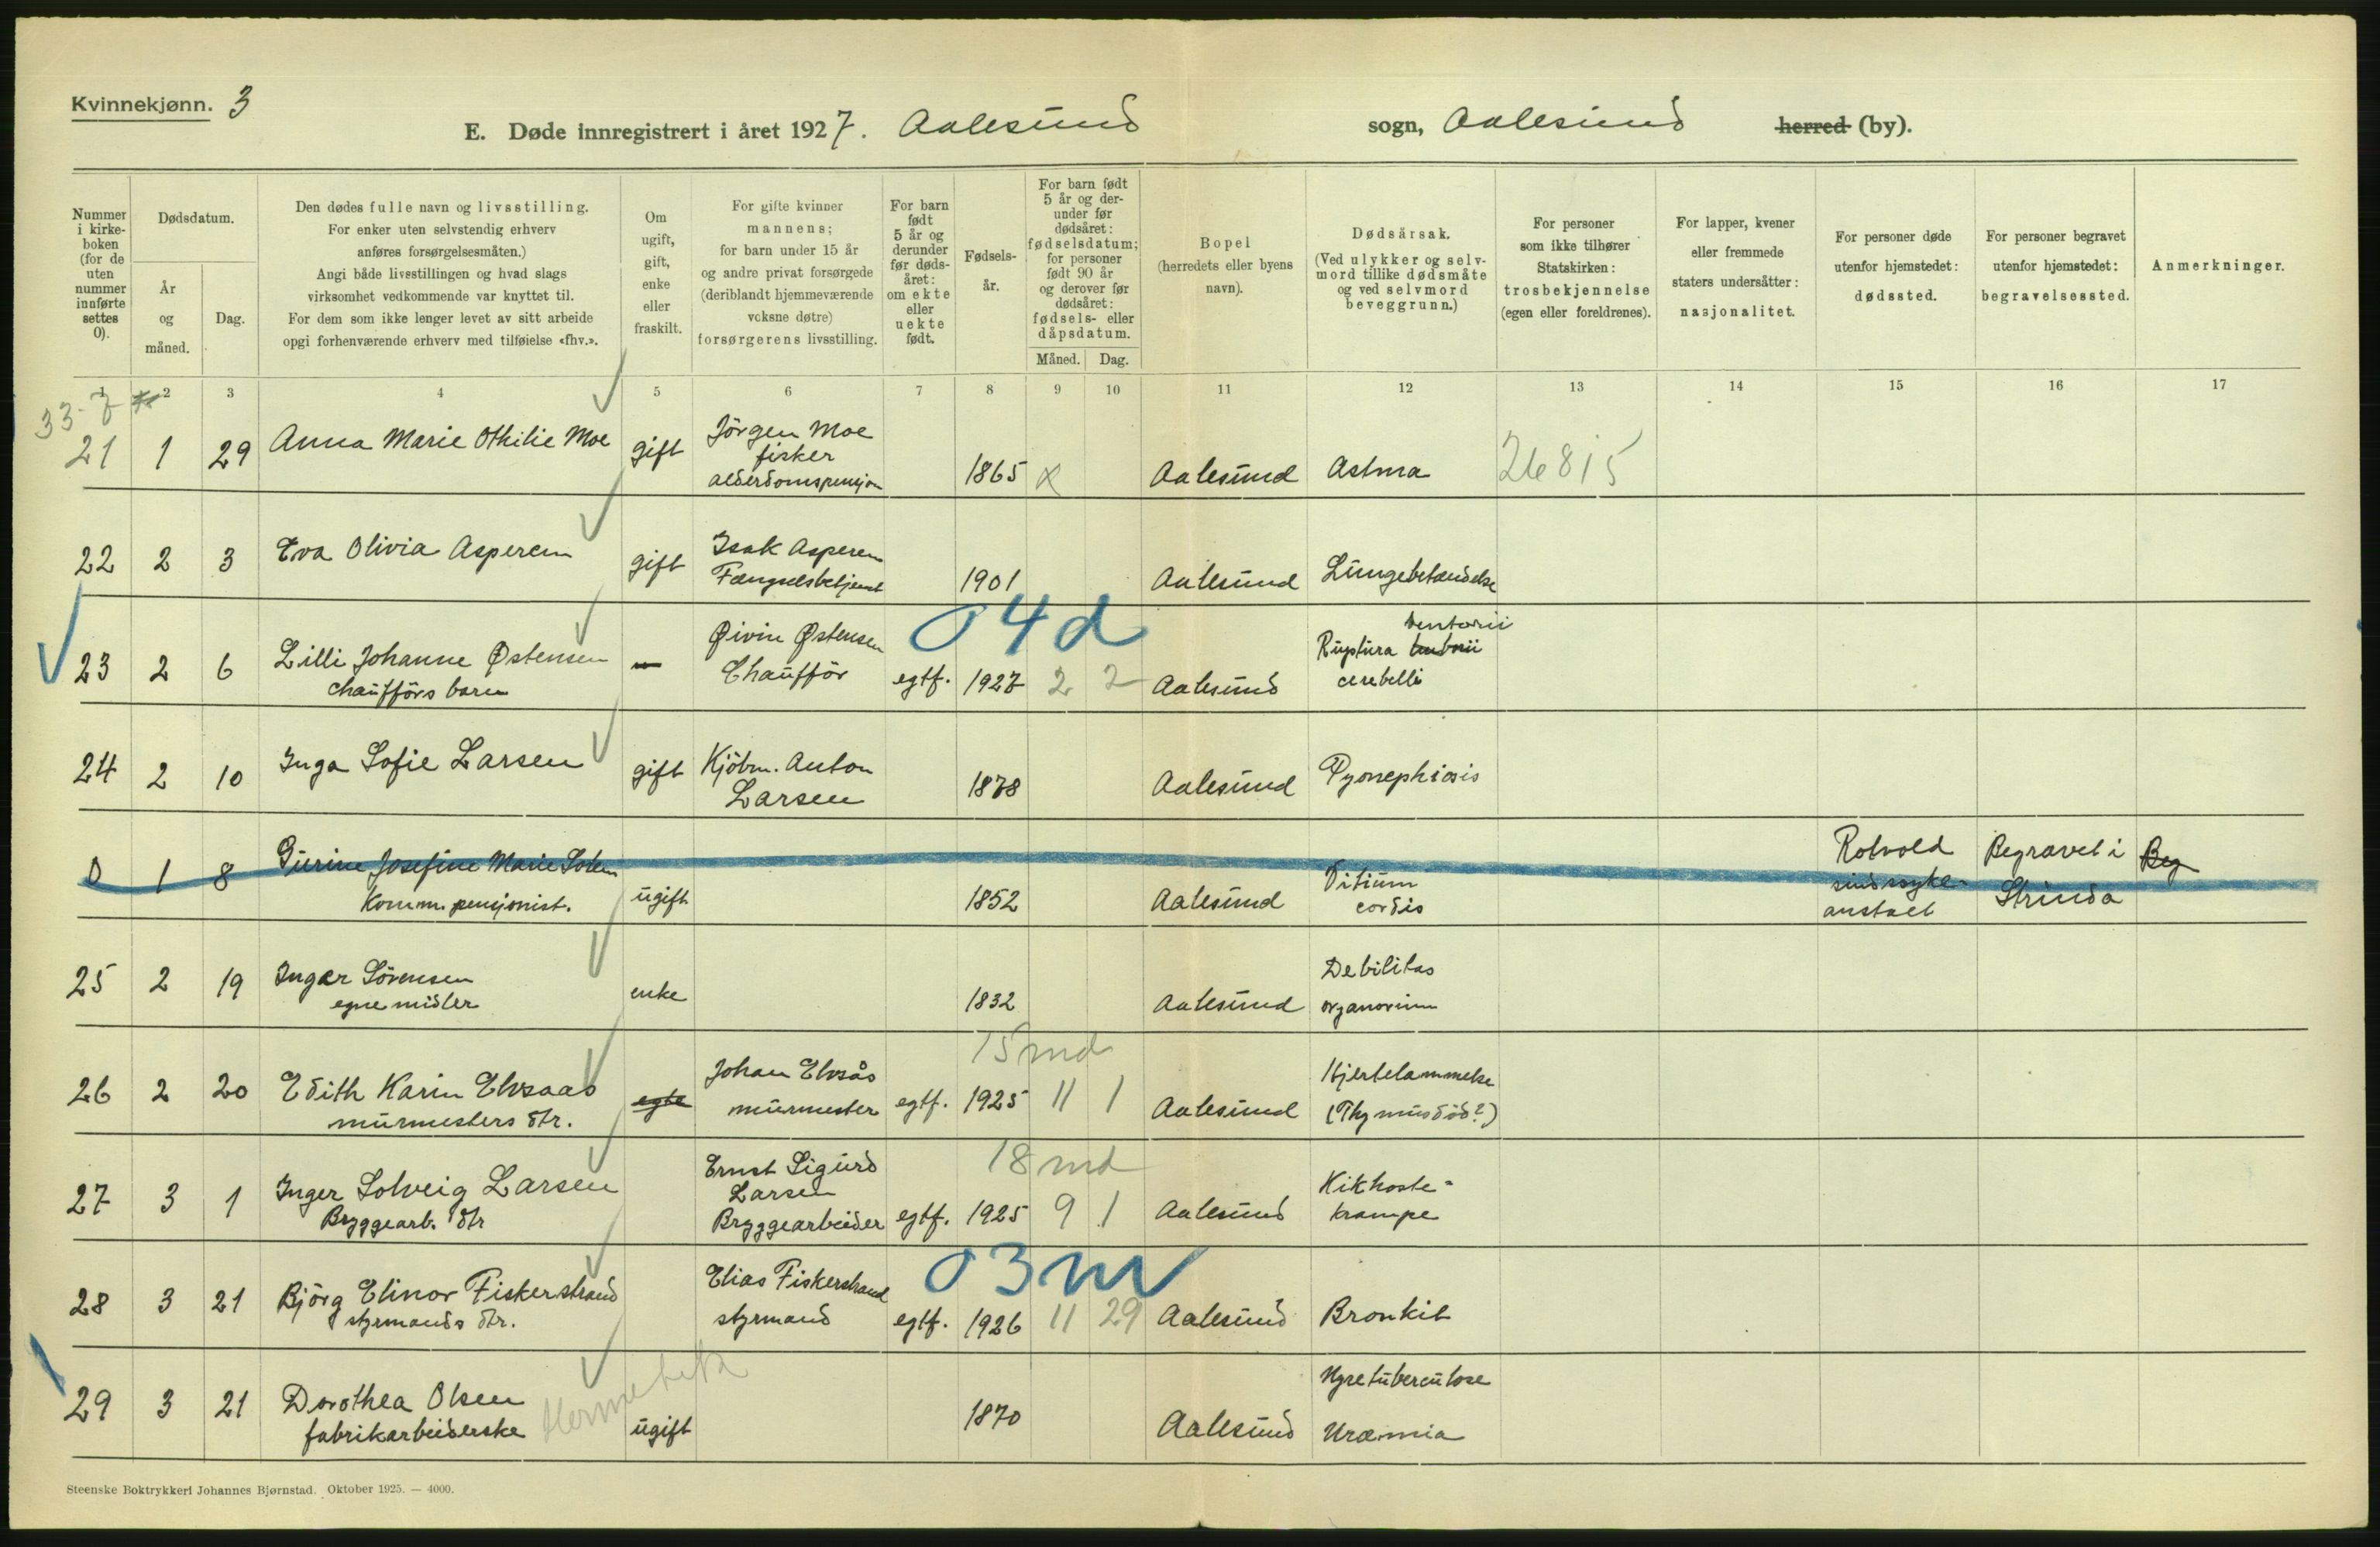 Kvinnekjønn. 3
E. Døde innregistrert i året 1927. Aalesund sogn, Aalesund herred (by).
Nummer i kirkeboken (for de uten nummer innførte settes 0).
Dødsdatum.
År og måned.
Dag.
Den dødes fulle navn og livsstilling.
For enker uten selvstendig erhverv
anføres forsørgelsesmåten.)
Angi både livsstillingen og hvad slags
virksomhet vedkommende var knyttet til.
For dem som ikke lenger levet av sitt arbeide
opgi forhenværende erhverv med tilføielse «fhv.».
Om ugift, gift, enke eller fraskilt.
For gifte kvinner
mannens;
for barn under 15 år
og andre privat forsørgede
(deriblandt hjemmeværende
voksne døtre)
forsørgerens livsstilling.
For barn født 5 år og derunder før dødsåret: om ekte eller uekte født.
Fødselsår.
For barn født 5 år og derunder før dødsåret: fødselsdatum; for personer født 90 år og derover før dødsåret: fødsels- eller dåpsdatum.
Måned. Dag.
Bopel
(herredets eller byens
navn).
Dødsårsak.
(Ved ulykker og selvmord tillike dødsmåte og ved selvmord beveggrunn.)
For personer
som ikke tilhører
Statskirken:
trosbekjennelse
(egen eller foreldrenes).
For lapper, kvener
eller fremmede
staters undersåtter:
nasjonalitet.
For personer døde
utenfor hjemstedet:
dødssted.
For personer begravet
utenfor hjemstedet:
begravelsessted.
Anmerkninger.
1 2 3 4 5 6 7 8 9 10 11 12 13 14 15 16 17
33-7
21 1 29 Anna Marie Othilie Moe gift Jörgen Moe fisker alderdomspensjon 1865 x Aalesund Astma 26815
22 2 3 Eva Olivia Asperem gift Isak Asperem Fængselsbetjent 1901 Aalesund Lungebetændelse
04d
23 2 6 Lilli Johanne Østensen chaufförs barn — Øivin Østensen Chaufför egtf. 1927 2 2 Aalesund Ruptura tentorii cerebelli
24 2 10 Inga Sofie Larsen gift Kjöbm. Anton Larsen 1878 Aalesund Pyonephiosis
0 1 8 Gurine Josefine Marie Solem Komm. pensjonist. ugift 1852 Aalesund Vitium cordis Rotvold sindssykeanstalt Begravet i Strinda Beg
25 2 19 Inger Sörensen egne midler enke 1832 Aalesund Debilitas organorum
15 md
26 2 20 Edith Karin Elvsaas murmesters dtr. egte Johan Elvsås murmester egtf. 1925 11 1 Aalesund Hjertelammelse (Thymusdöd?)
18 md
27 3 1 Inger Solveig Larsen Bryggearb. dtr Ernst Sigurd Larsen Bryggearbeider egtf. 1925 9 1 Aalesund Kikhostekrampe
03m
28 3 21 Björg Elinor Fiskerstrand styrmands dtr. Elias Fiskerstrand styrmand egtf. 1926 11 29 Aalesund Bronkit
29 3 21 Dorothea Olsen fabrikarbeiderske Hermetikk ugift 1870 Aalesund Nyretuberculose Uræmia
Steenske Boktrykkeri Johannes Bjørnstad. Oktober 1925. — 4000.